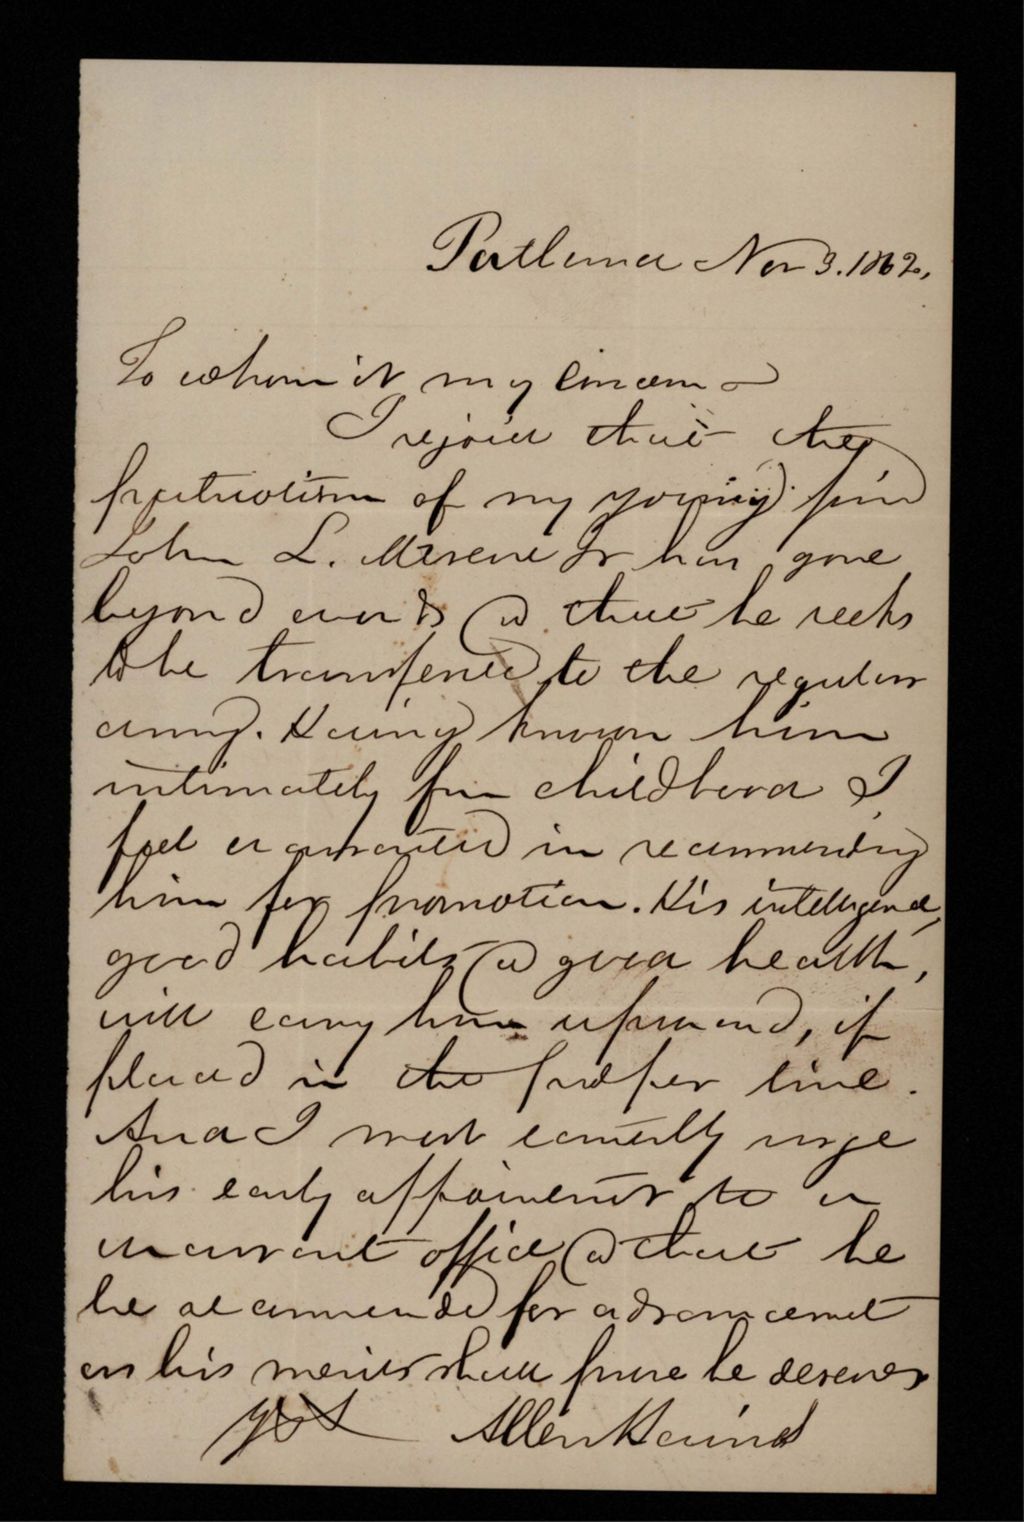 Portland Nov 3. 1862.
To whom it my concern
I rejoice that the
patriotism of my young frind
John L. Meserve Jr has gone
beyond words & that he seeks
to be transfered to the regular
army. Having known him
intimately frm childhood I
feel warranted in recommending
him for promotion. His intelligence,
good habits & good health,
will carry him upward, if
placed in the proper line.
And I most earnestly urge
his early appointment to a
warrant office & that he
be recommended for advancemet
as his merits shall prove he deserves
yrs Allen Haines